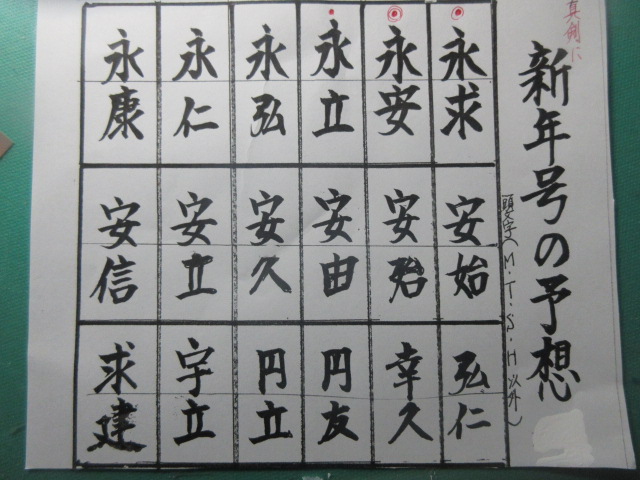 真例に
新年号の予想
頭文字(M・T・S・H以外)
永求
永安
永立
永弘
永仁
永康
安始
安治
安由
安久
安立
安信
弘仁
幸久
円友
円立
宇立
求建